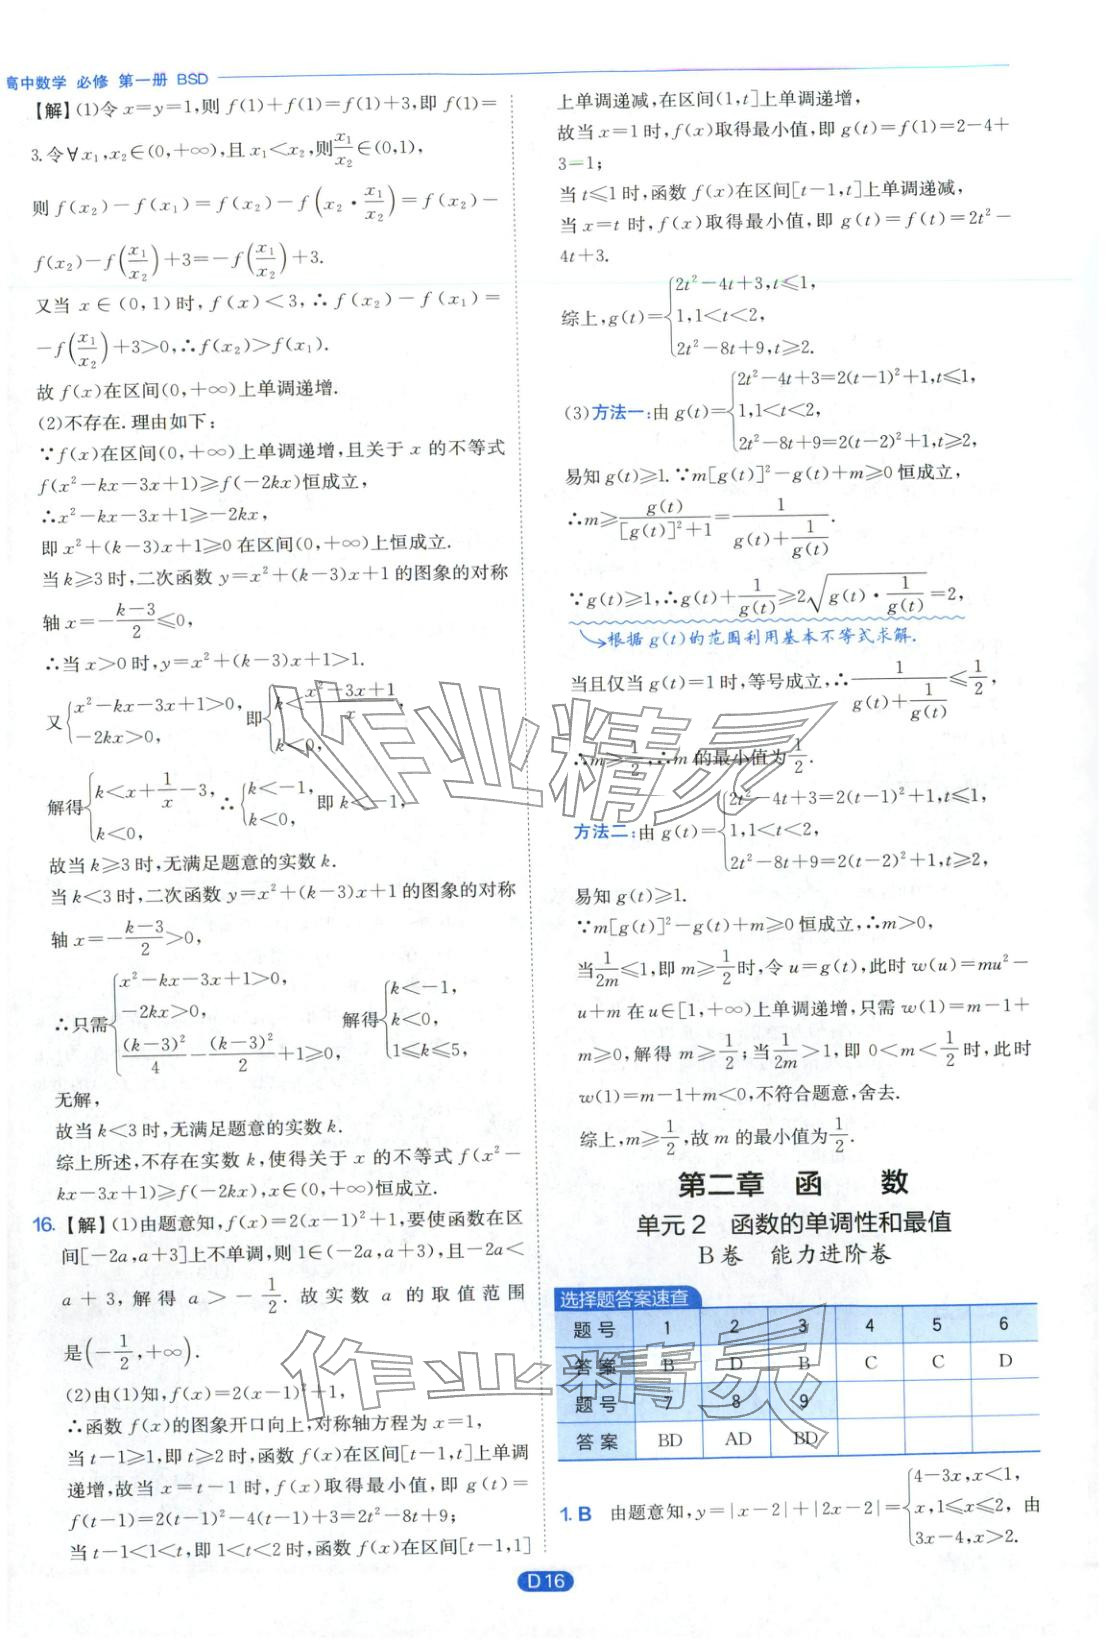 高中数学 必修 第一册 BSD
【解】(1)令 x=y=1,则 f(1)+f(1)=f(1)+3,即 f(1)=
3.令∀x₁,x₂∈(0,+∞),且 x₁<x₂,则x₁/x₂∈(0,1),
则 f(x₂)-f(x₁)=f(x₂)-f(x₂·x₁/x₂)=f(x₂)-
f(x₂)-f(x₁/x₂)+3=-f(x₁/x₂)+3.
又当 x∈(0,1)时,f(x)<3,∴f(x₂)-f(x₁)=
-f(x₁/x₂)+3>0,∴f(x₂)>f(x₁).
故 f(x)在区间(0,+∞)上单调递增.
(2)不存在.理由如下:
∵f(x)在区间(0,+∞)上单调递增,且关于 x 的不等式
f(x²-kx-3x+1)≥f(-2kx)恒成立,
∴x²-kx-3x+1≥-2kx,
即 x²+(k-3)x+1≥0 在区间(0,+∞)上恒成立.
当 k≥3 时,二次函数 y=x²+(k-3)x+1 的图象的对称
轴 x=-(k-3)/2≤0,
∴当 x>0 时,y=x²+(k-3)x+1>1.
又{x²-kx-3x+1>0, -2kx>0, 即{k<(x²-3x+1)/x, k<0,
解得{k<x+1/x-3, k<0, ∴{k<-1, k<0, 即 k<-1,
故当 k≥3 时,无满足题意的实数 k.
当 k<3 时,二次函数 y=x²+(k-3)x+1 的图象的对称
轴 x=-(k-3)/2>0,
∴只需{x²-kx-3x+1>0, -2kx>0, (k-3)²/4-(k-3)²/2+1≥0, 解得{k<-1, k<0, 1≤k≤5,
无解,
故当 k<3 时,无满足题意的实数 k.
综上所述,不存在实数 k,使得关于 x 的不等式 f(x²-
kx-3x+1)≥f(-2kx),x∈(0,+∞)恒成立.
16.【解】(1)由题意知,f(x)=2(x-1)²+1,要使函数在区
间[-2a,a+3]上不单调,则 1∈(-2a,a+3),且-2a<
a+3,解得 a>-1/2.故实数 a 的取值范围
是(-1/2,+∞).
(2)由(1)知,f(x)=2(x-1)²+1,
∴函数 f(x)的图象开口向上,对称轴方程为 x=1,
当 t-1≥1,即 t≥2 时,函数 f(x)在区间[t-1,t]上单调
递增,故当 x=t-1 时,f(x)取得最小值,即 g(t)=
f(t-1)=2(t-1)²-4(t-1)+3=2t²-8t+9;
当 t-1<1<t,即 1<t<2 时,函数 f(x)在区间[t-1,1]
上单调递减,在区间(1,t]上单调递增,
故当 x=1 时,f(x)取得最小值,即 g(t)=f(1)=2-4+
3=1;
当 t≤1 时,函数 f(x)在区间[t-1,t]上单调递减,
当 x=t 时,f(x)取得最小值,即 g(t)=f(t)=2t²-
4t+3.
综上,g(t)={2t²-4t+3,t≤1, 1,1<t<2, 2t²-8t+9,t≥2.
(3)方法一:由 g(t)={2t²-4t+3=2(t-1)²+1,t≤1, 1,1<t<2, 2t²-8t+9=2(t-2)²+1,t≥2,
易知 g(t)≥1.∵m[g(t)]²-g(t)+m≥0 恒成立,
∴m≥g(t)/([g(t)]²+1)=1/(g(t)+1/g(t)).
∵g(t)≥1,∴g(t)+1/g(t)≥2√(g(t)·1/g(t))=2,
根据 g(t)的范围利用基本不等式求解.
当且仅当 g(t)=1 时,等号成立,∴1/(g(t)+1/g(t))≤1/2,
∴m≥1/2,∴m 的最小值为1/2.
方法二:由 g(t)={2t²-4t+3=2(t-1)²+1,t≤1, 1,1<t<2, 2t²-8t+9=2(t-2)²+1,t≥2,
易知 g(t)≥1.
∵m[g(t)]²-g(t)+m≥0 恒成立,∴m>0,
当1/2m≤1,即 m≥1/2时,令 u=g(t),此时 w(u)=mu²-
u+m 在 u∈[1,+∞)上单调递增,只需 w(1)=m-1+
m≥0,解得 m≥1/2;当1/2m>1,即 0<m<1/2时,此时
w(1)=m-1+m<0,不符合题意,舍去.
综上,m≥1/2,故 m 的最小值为1/2.
第二章 函 数
单元 2 函数的单调性和最值
B 卷 能力进阶卷
选择题答案速查
题号 1 2 3 4 5 6
答案 B D B C C D
题号 7 8 9
答案 BD AD BD
1. B 由题意知,y=|x-2|+|2x-2|={4-3x,x<1, x,1≤x≤2, 3x-4,x>2. 由
D16
作业精灵
作业精灵